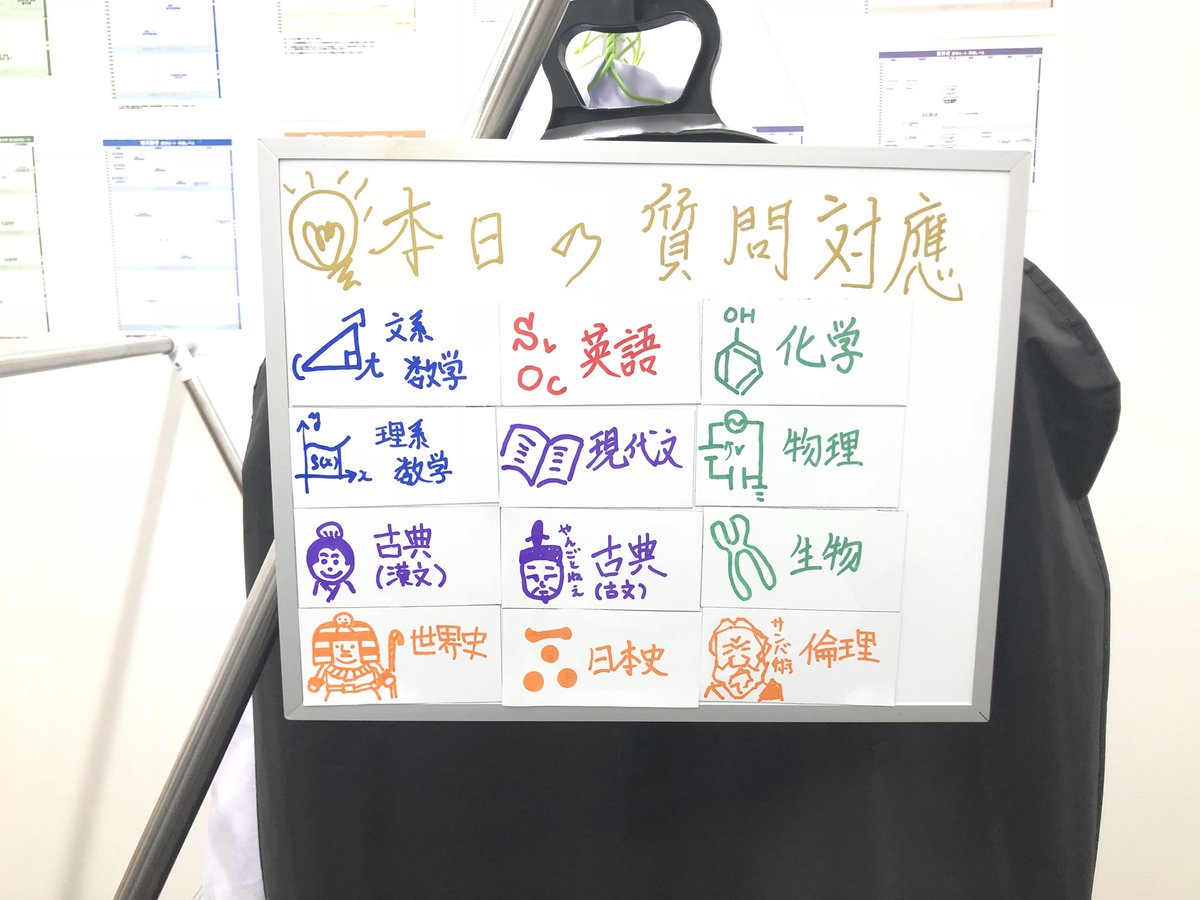 本日の質問対應
C t
文系
数学
S V
O C
英語
OH
化学
y
S(x)
x
理系
数学
現代文
V
物理
古典
(漢文)
やんごとねぇ
古典
(古文)
生物
世界史
日本史
サンバ術
倫理